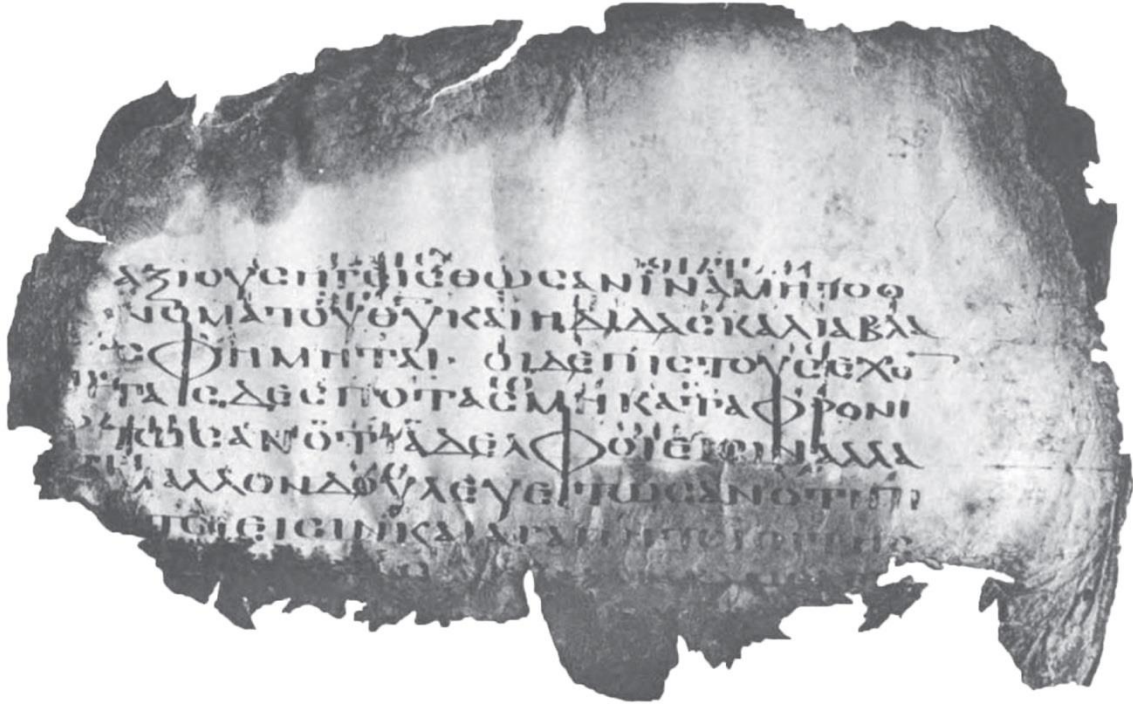 ΑΞΙΟΥϹΗΓΕΙϹΘΩϹΑΝΙΝΑΜΗΤΟΟ
ΝΟΜΑΤΟΥΘΥΚΑΙΗΔΙΔΑϹΚΑΛΙΑΒΛΑ
ϹΦΗΜΗΤΑΙ· ΟΙΔΕΠΙϹΤΟΥϹΕΧΟ
ΤΑϹΔΕϹΠΟΤΑϹΜΗΚΑΤΑΦΡΟΝΙ
ΤΩϹΑΝΟΤΙΑΔΕΛΦΟΙΕΙϹΙΝΑΛΛΑ
ΜΑΛΛΟΝΔΟΥΛΕΥΕΤΩϹΑΝΟΤΙΠΙ
ϹΤΟΙΕΙϹΙΝΚΑΙΑΓΑΠΗΤΟΙΟΙΤΗϹ